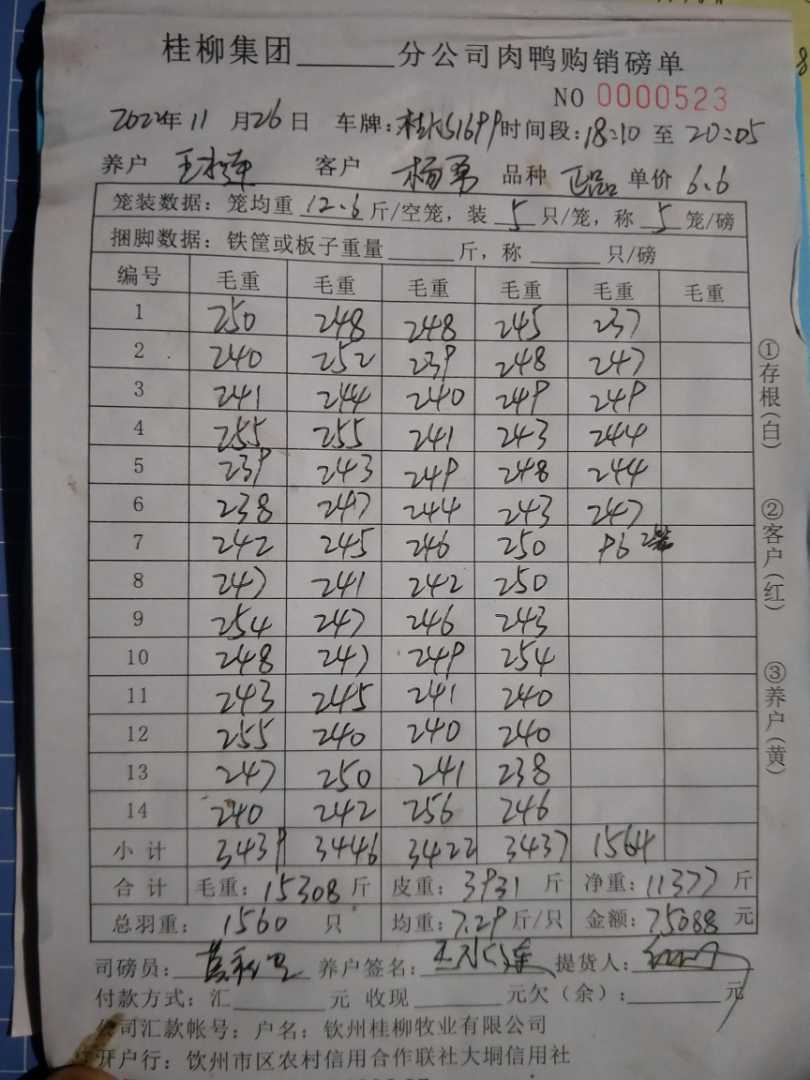 桂柳集团______分公司肉鸭购销磅单
NO 0000523
2022年11月26日 车牌: 时间段:18:10 至 20:05
养户 客户 杨勇 品种 正品 单价 6.6
笼装数据:笼均重 12.6 斤/空笼,装 5 只/笼,称 5 笼/磅
捆脚数据:铁筐或板子重量______斤,称______只/磅
编号 毛重 毛重 毛重 毛重 毛重 毛重
1 250 248 248 245 237
2 240 252 239 248 247
3 241 244 240 249 249
4 255 255 241 243 244
5 239 243 249 248 244
6 238 247 244 243 247
7 242 245 246 250 96
8 247 241 242 250
9 254 247 246 243
10 248 247 249 254
11 243 245 241 240
12 255 240 240 240
13 247 250 241 238
14 240 242 256 246
小计 3439 3446 3422 3437 1564
合计 毛重:15308斤 皮重:3931斤 净重:11377斤
总羽重:1560 只 均重:7.29斤/只 金额:75088元
司磅员: 养户签名: 提货人:
付款方式:汇______元 收现______元欠(余):______元
公司汇款帐号:户名:钦州桂柳牧业有限公司
开户行:钦州市区农村信用合作联社大垌信用社
①存根(白)
②客户(红)
③养户(黄)